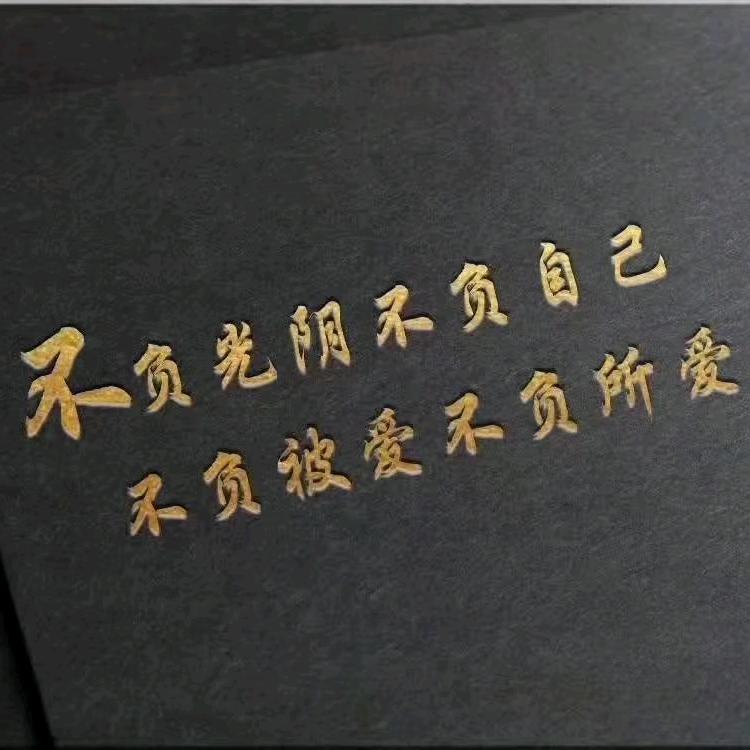 不负光阴不负自己
不负被爱不负所爱